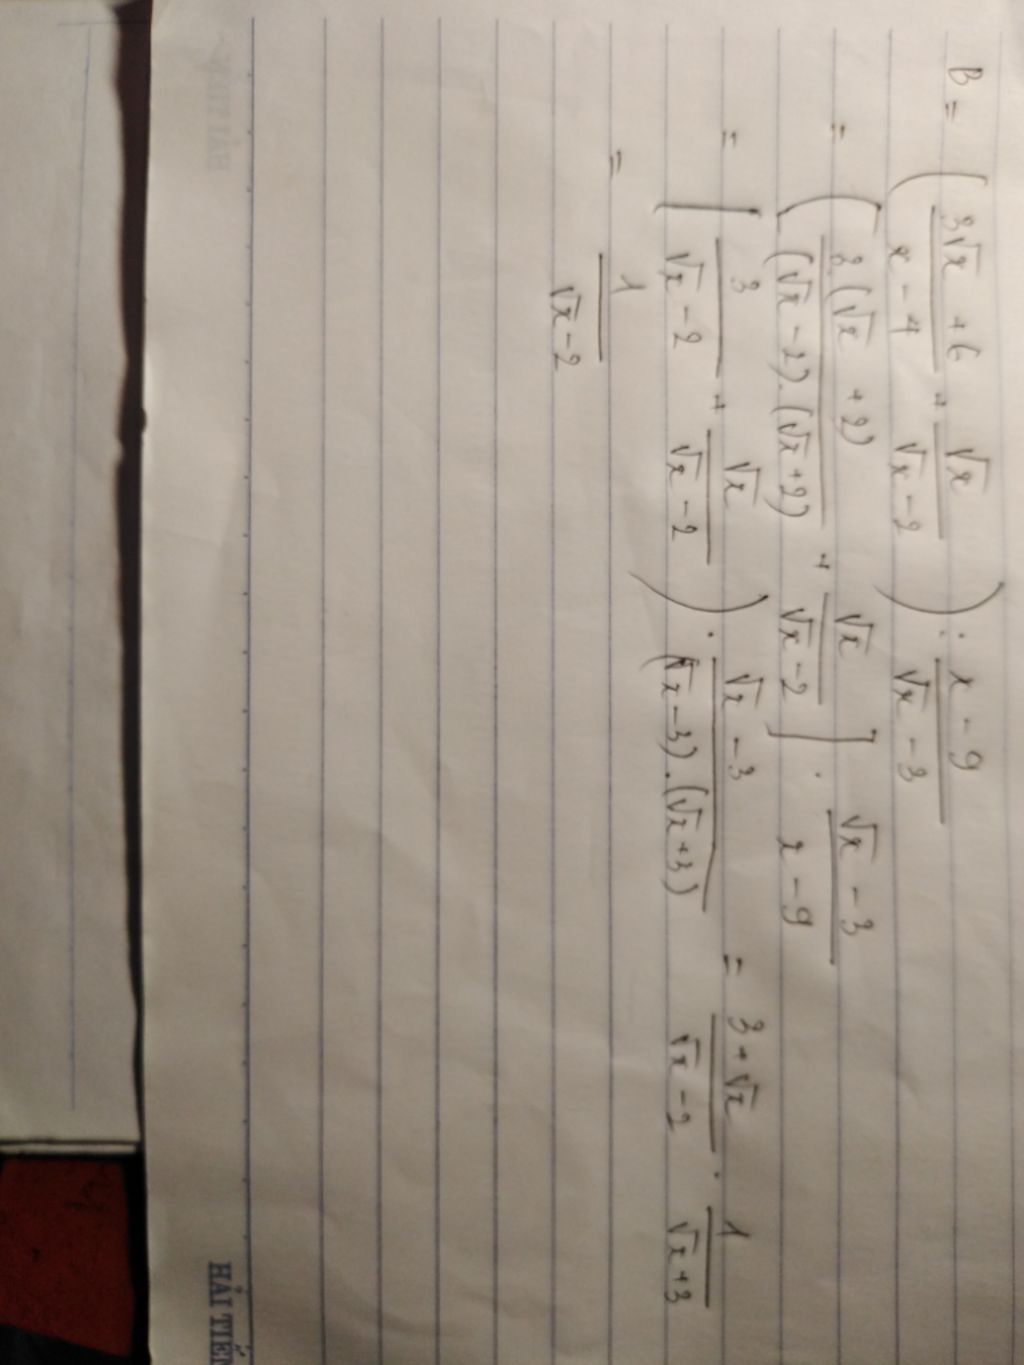 B = ( (3√x + 6)/(x - 4) + √x/(√x - 2) ) : (x - 9)/(√x - 3)
= ( 3(√x + 2)/((√x - 2).(√x + 2)) + √x/(√x - 2) ] . (√x - 3)/(x - 9)
= [ 3/(√x - 2) + √x/(√x - 2) ) . (√x - 3)/((√x - 3).(√x + 3)) = (3 + √x)/(√x - 2) . 1/(√x + 3)
= 1/(√x - 2)
HẢI TIẾN